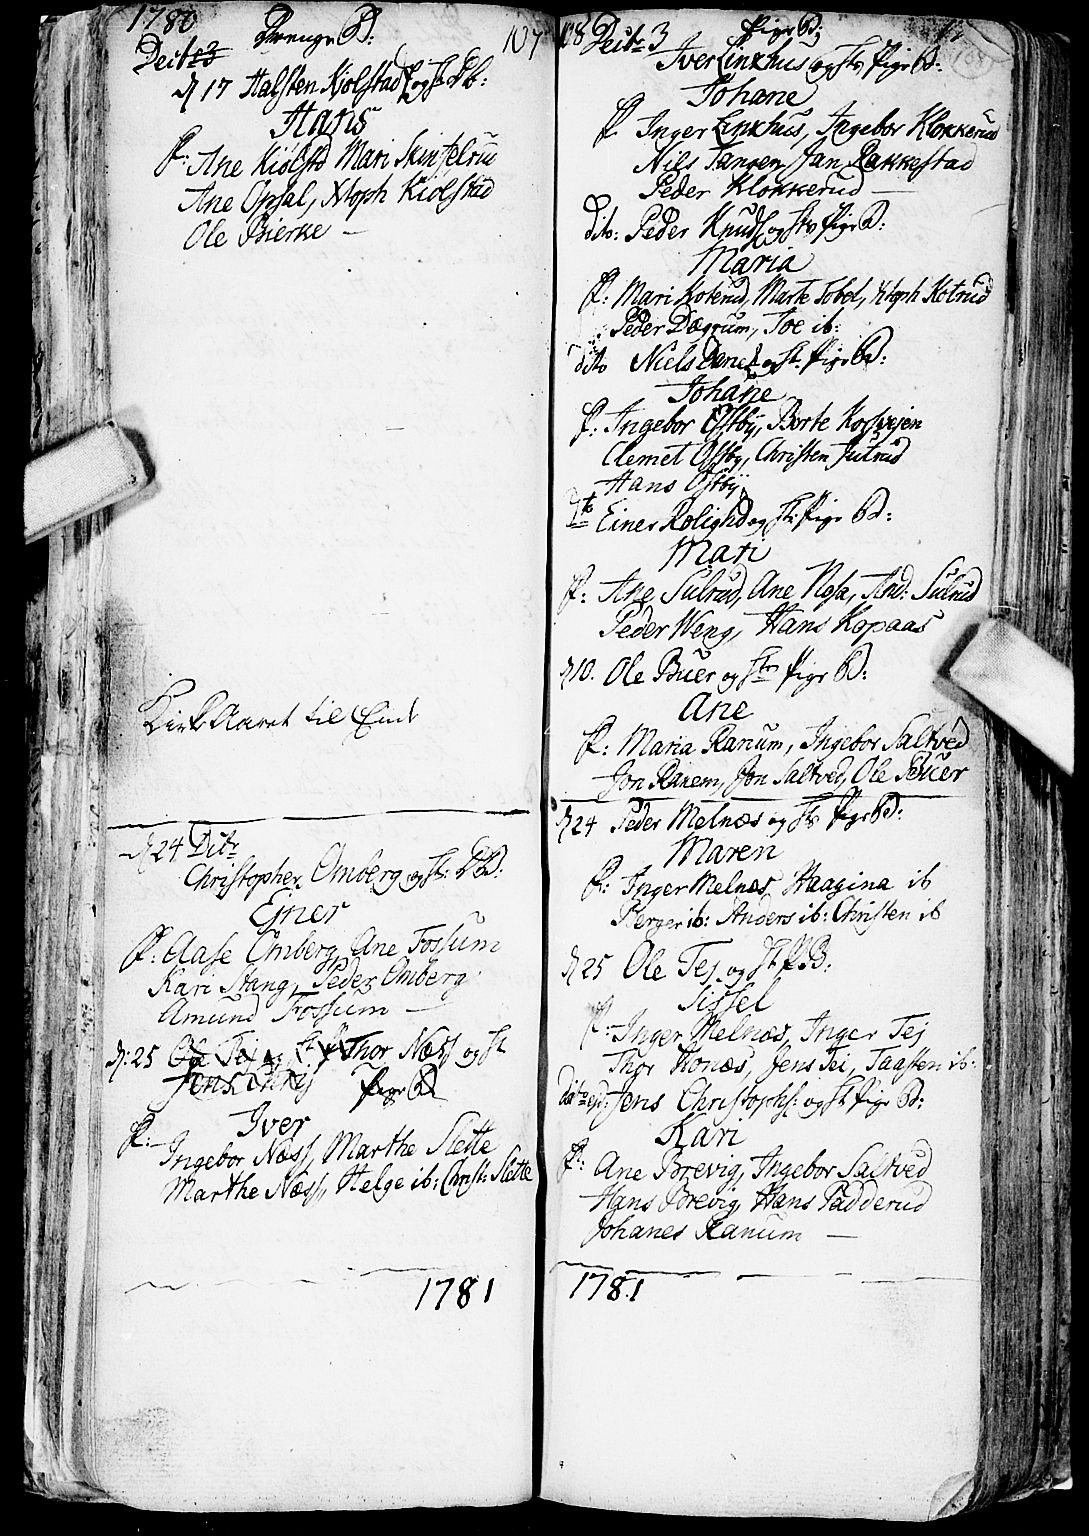 1780 Drenge B: 107
Decbr 3
d 17 Halsten Kiolstad og H: D b:
Hans
F: Ane Kiölstd Mari Skinselru
Ane Opsal, Xstoph Kiölstad
Ole Bierke —
Kirke Aaret til Ende
d 24 Dcbr
Christopher Omberg og H: D B:
Einer
F: Aase Omberg, Ane Fossum
Kari Stang, Peder Omberg
Amund Fossum —
d: 25 Ole Tej og Thor Næss og H
Jens Pige B
Iver
F: Ingebor Næss, Marthe Slette
Marthe Næss, Helge ib: Christ: Slette
1781
108 Decbr 3 Pige B:
Iver Linkhus og H Pige B:
Johane
F Inger Linkhus, Ingebor Klokkerud
Nils Tangen, Jan Rakkestad
Peder Klokkerud —
dito: Peder Knuds og H Pige B:
Maria
F: Mari Koterud, Marte Tobel, Xstoph Kotrud
Peder Dægrum, Joe ib:
dito Niels og H: Pige B:
Johane
F: Ingebor Ofstby, Borte Korsvejen
Clemet Ofsby, Christen Jutrud
Hans Ofstby
Dto Einer Rolighd og H: Pige B:
Mari
F: Ane Sulrud, Ane Nosk, And: Sulrud
Peder Weng, Hans Kopaas
d 10. Ole Buer og Hr Pige B:
Ane
F: Maria Ranum, Ingebor Saltved
Jon Ranem, Jon Saltved, Ole Buer
d 24 Peder Melnæs og H Pige B:
Maren
F: Inger Melnæs, Haagina ib
Berger ib: Anders ib: Christen ib
d 25 Ole Tej og H P B:
Sissel
F: Inger Melnæs, Inger Tej
Thor Honæs, Jens Tei, Taasten ib:
dito Jens Christophs: og H Pige B:
Kari
F: Ane Brevig, Ingebor Saltved
Hans Brevig, Hans Padderud
Johanes Ranum —
1781